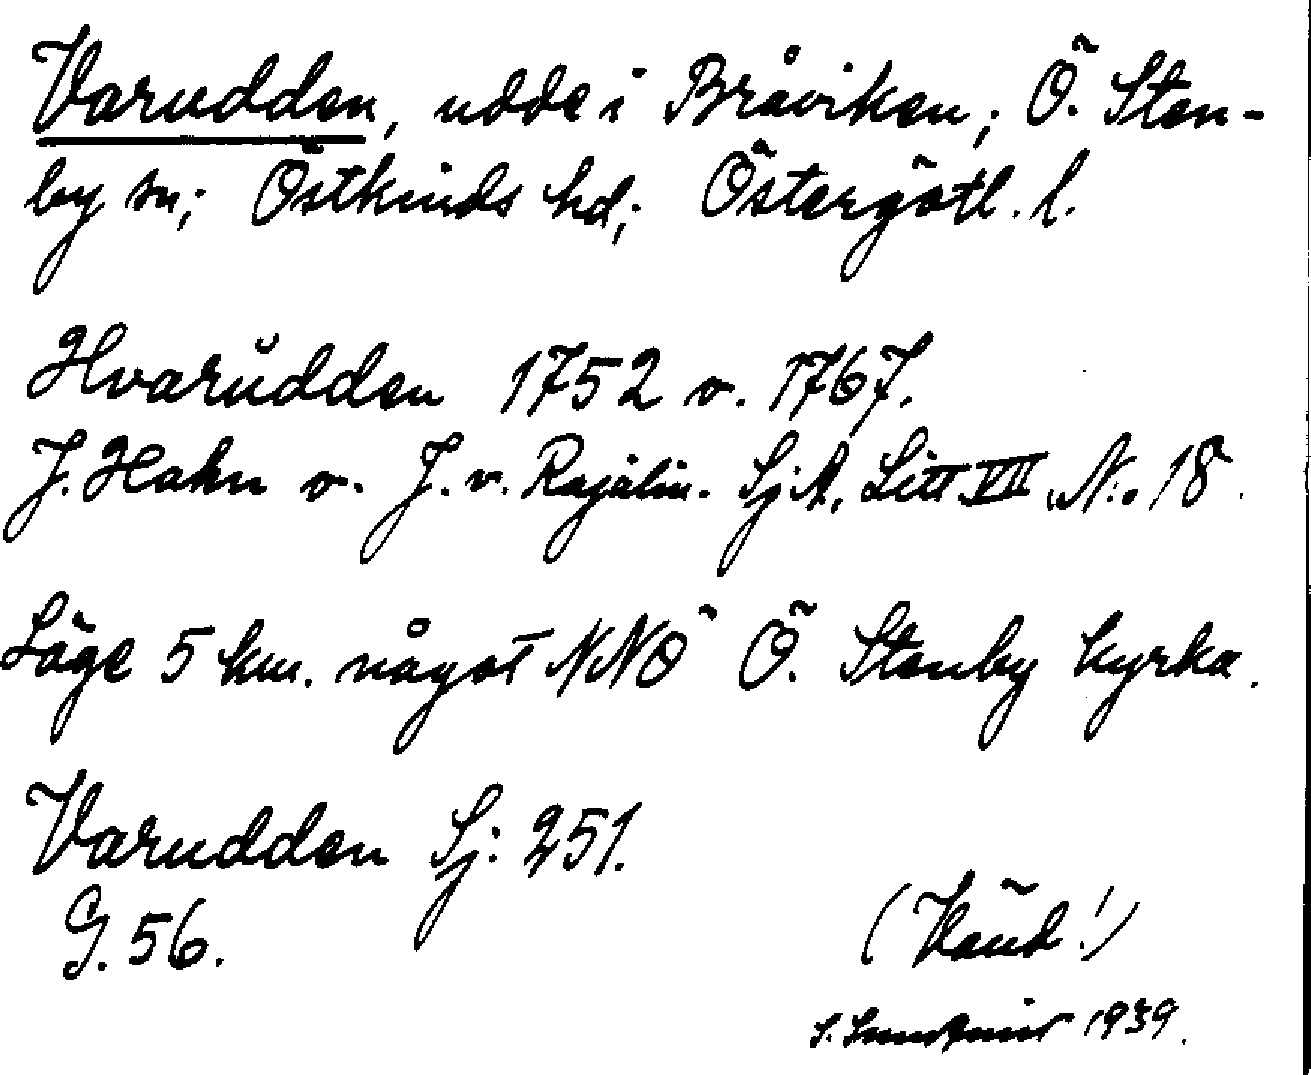 Varudden, udde i Bråviken; Ö. Sten-
by sn; Östkinds hd; Östergötl. l.
Hvarudden 1752 o. 1767.
J. Hahn o. J. v. Rajalin. SjA, Litt VII No 18.
Läge 5 km. något NNO Ö. Stenby kyrka.
Varudden Sj: 251.
G. 56.
(Vänd!)
S. 1939.